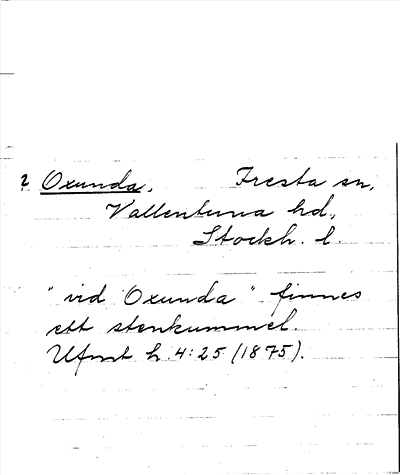 ? Oxunda, Fresta sn,
Vallentuna hd,
Stockh. l.
"vid Oxunda" finnes
ett stenkummel.
Ufmt h. 4:25 (1875).